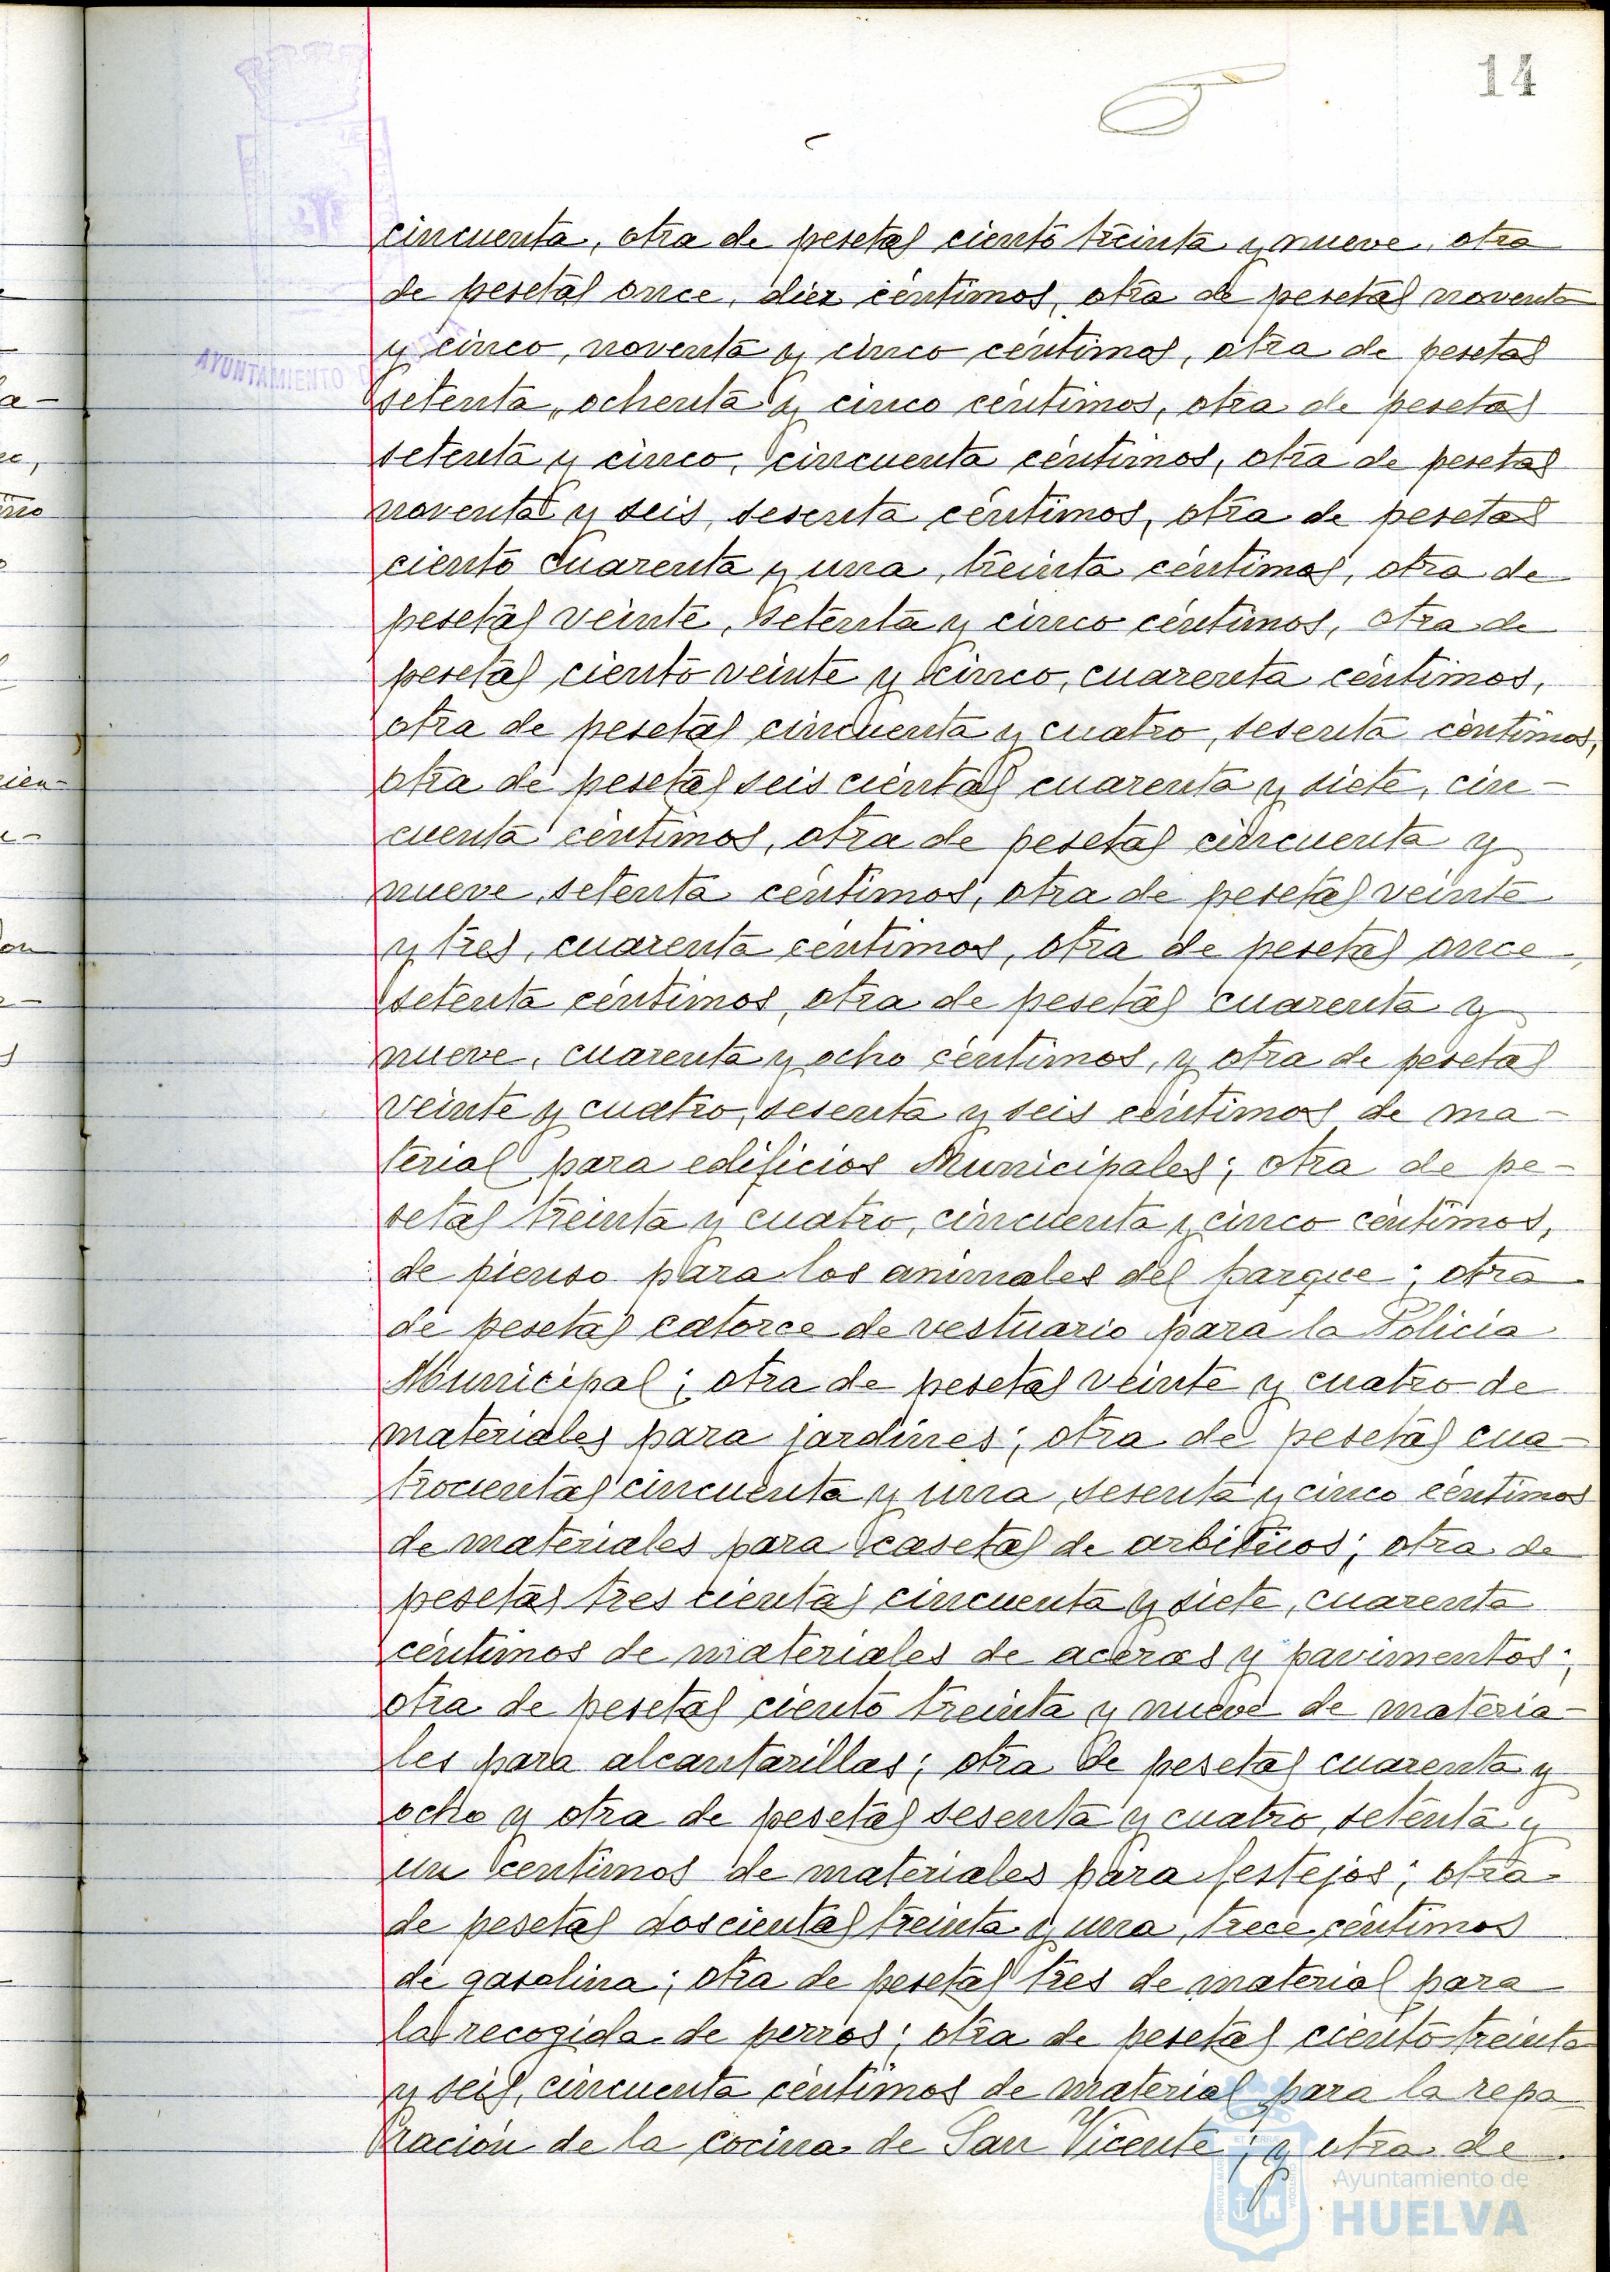 14
cincuenta, otra de pesetas ciento treinta y nueve, otra
de pesetas once, diez céntimos, otra de pesetas noventa
y cinco, noventa y cinco céntimos, otra de pesetas
AYUNTAMIENTO
setenta, ochenta y cinco céntimos, otra de pesetas
setenta y cinco, cincuenta céntimos, otra de pesetas
noventa y seis, sesenta céntimos, otra de pesetas
ciento cuarenta y una, treinta céntimos, otra de
pesetas veinte, setenta y cinco céntimos, otra de
pesetas ciento veinte y cinco, cuarenta céntimos,
otra de pesetas cincuenta y cuatro, sesenta céntimos,
otra de pesetas seis cientas cuarenta y siete, cin-
cuenta céntimos, otra de pesetas cincuenta y
nueve, setenta céntimos, otra de pesetas veinte
y tres, cuarenta céntimos, otra de pesetas once,
setenta céntimos, otra de pesetas cuarenta y
nueve, cuarenta y ocho céntimos, y otra de pesetas
veinte y cuatro, sesenta y seis céntimos de ma-
terial para edificios Municipales; otra de pe-
setas treinta y cuatro, cincuenta y cinco céntimos,
de pienso para los animales del parque; otra
de pesetas catorce de vestuario para la Policía
Municipal; otra de pesetas veinte y cuatro de
materiales para jardines; otra de pesetas cua-
trocientas cincuenta y una, sesenta y cinco céntimos
de materiales para casetas de arbitrios; otra de
pesetas tres cientas cincuenta y siete, cuarenta
céntimos de materiales de aceras y pavimentos;
otra de pesetas ciento treinta y nueve de materia-
les para alcantarillas; otra de pesetas cuarenta y
ocho y otra de pesetas sesenta y cuatro, setenta y
un centimos de materiales para festejos; otra
de pesetas doscientas treinta y una, trece céntimos
de gasolina; otra de pesetas tres de material para
la recogida de perros; otra de pesetas ciento treinta
y seis, cincuenta céntimos de material para la repa
ración de la cocina de San Vicente; y otra de
Ayuntamiento de
HUELVA